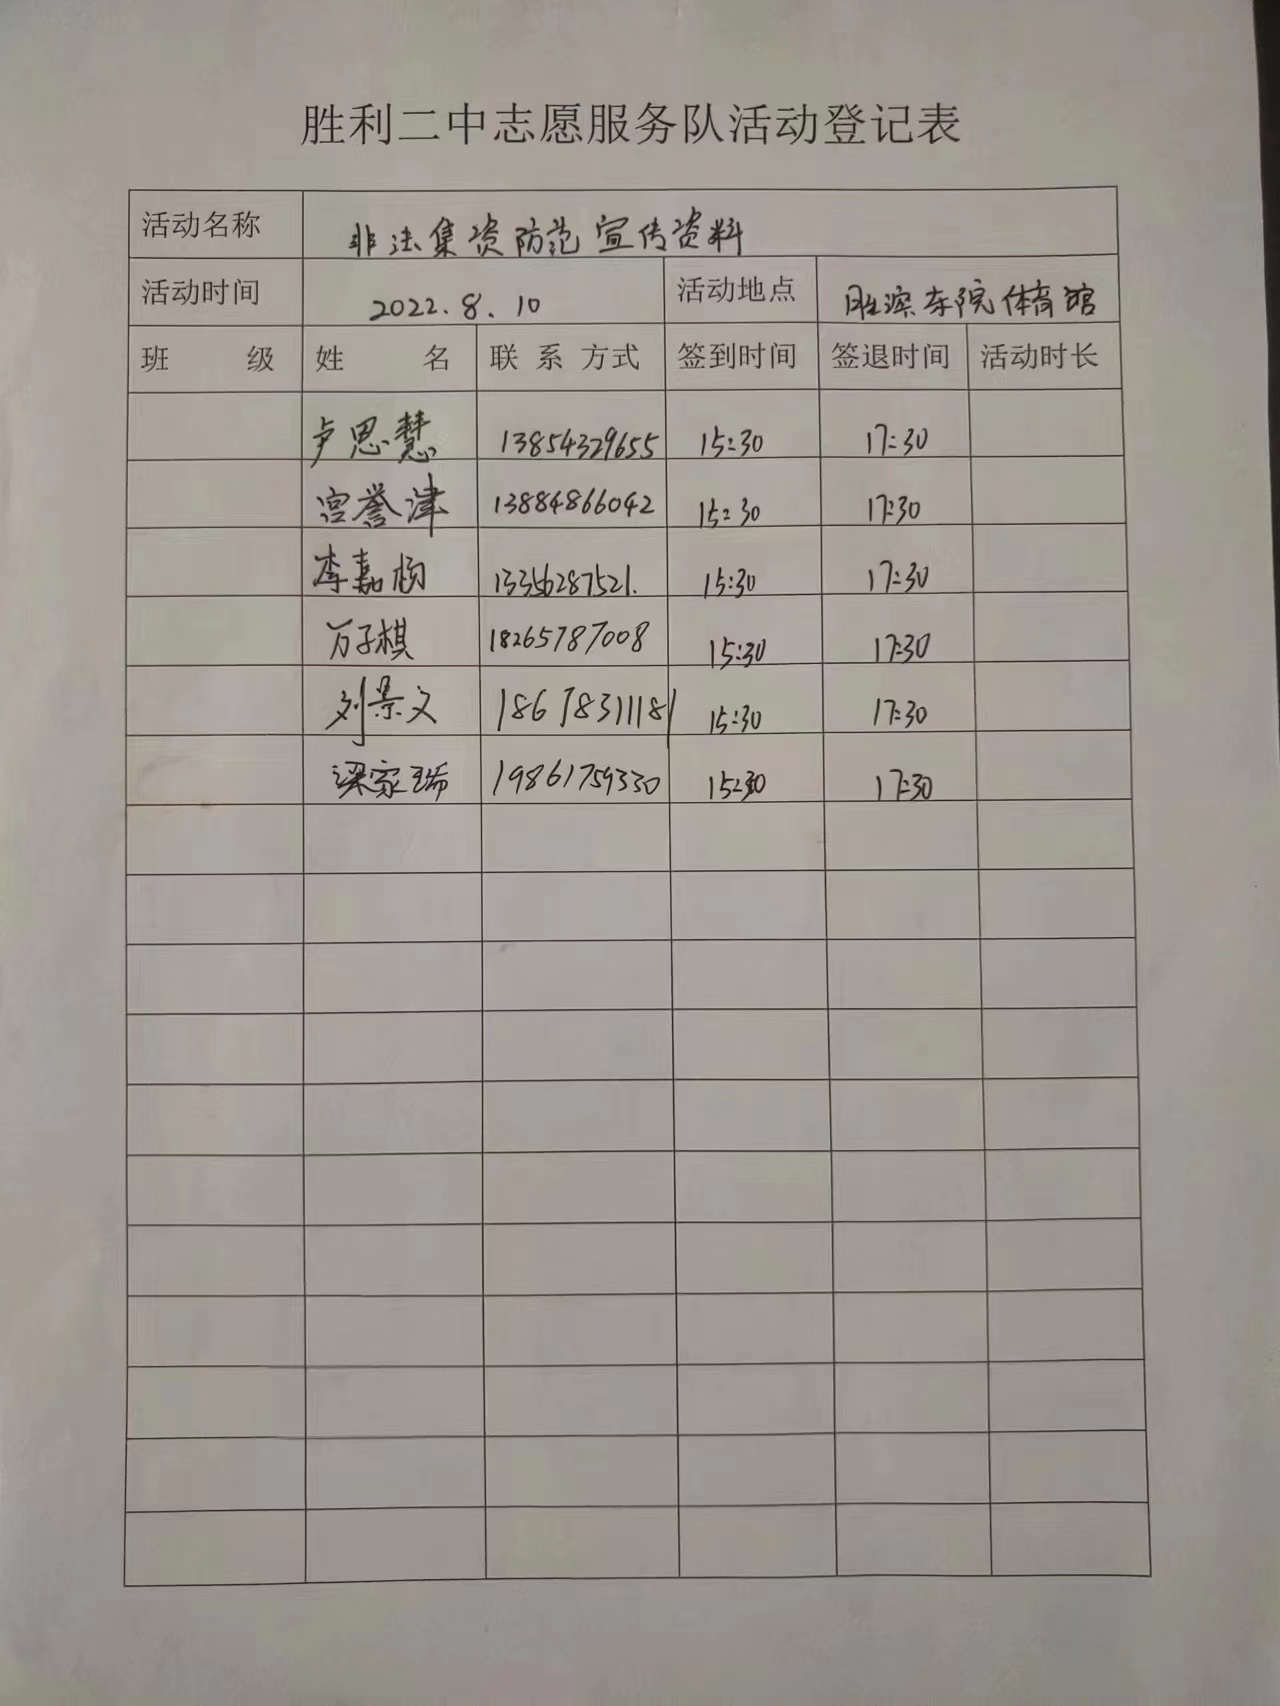 胜利二中志愿服务队活动登记表
活动名称 非法集资防范宣传资料
活动时间 2022.8.10 活动地点 胜滨东院体育馆
班 级 姓 名 联 系 方式 签到时间 签退时间 活动时长
卢思慧 13854329655 15:30 17:30
宫誉津 13884866042 15:30 17:30
李嘉杨 13356287521. 15:30 17:30
万子棋 18265787008 15:30 17:30
刘景文 18678311181 15:30 17:30
梁家瑞 19861759330 15:30 17:30